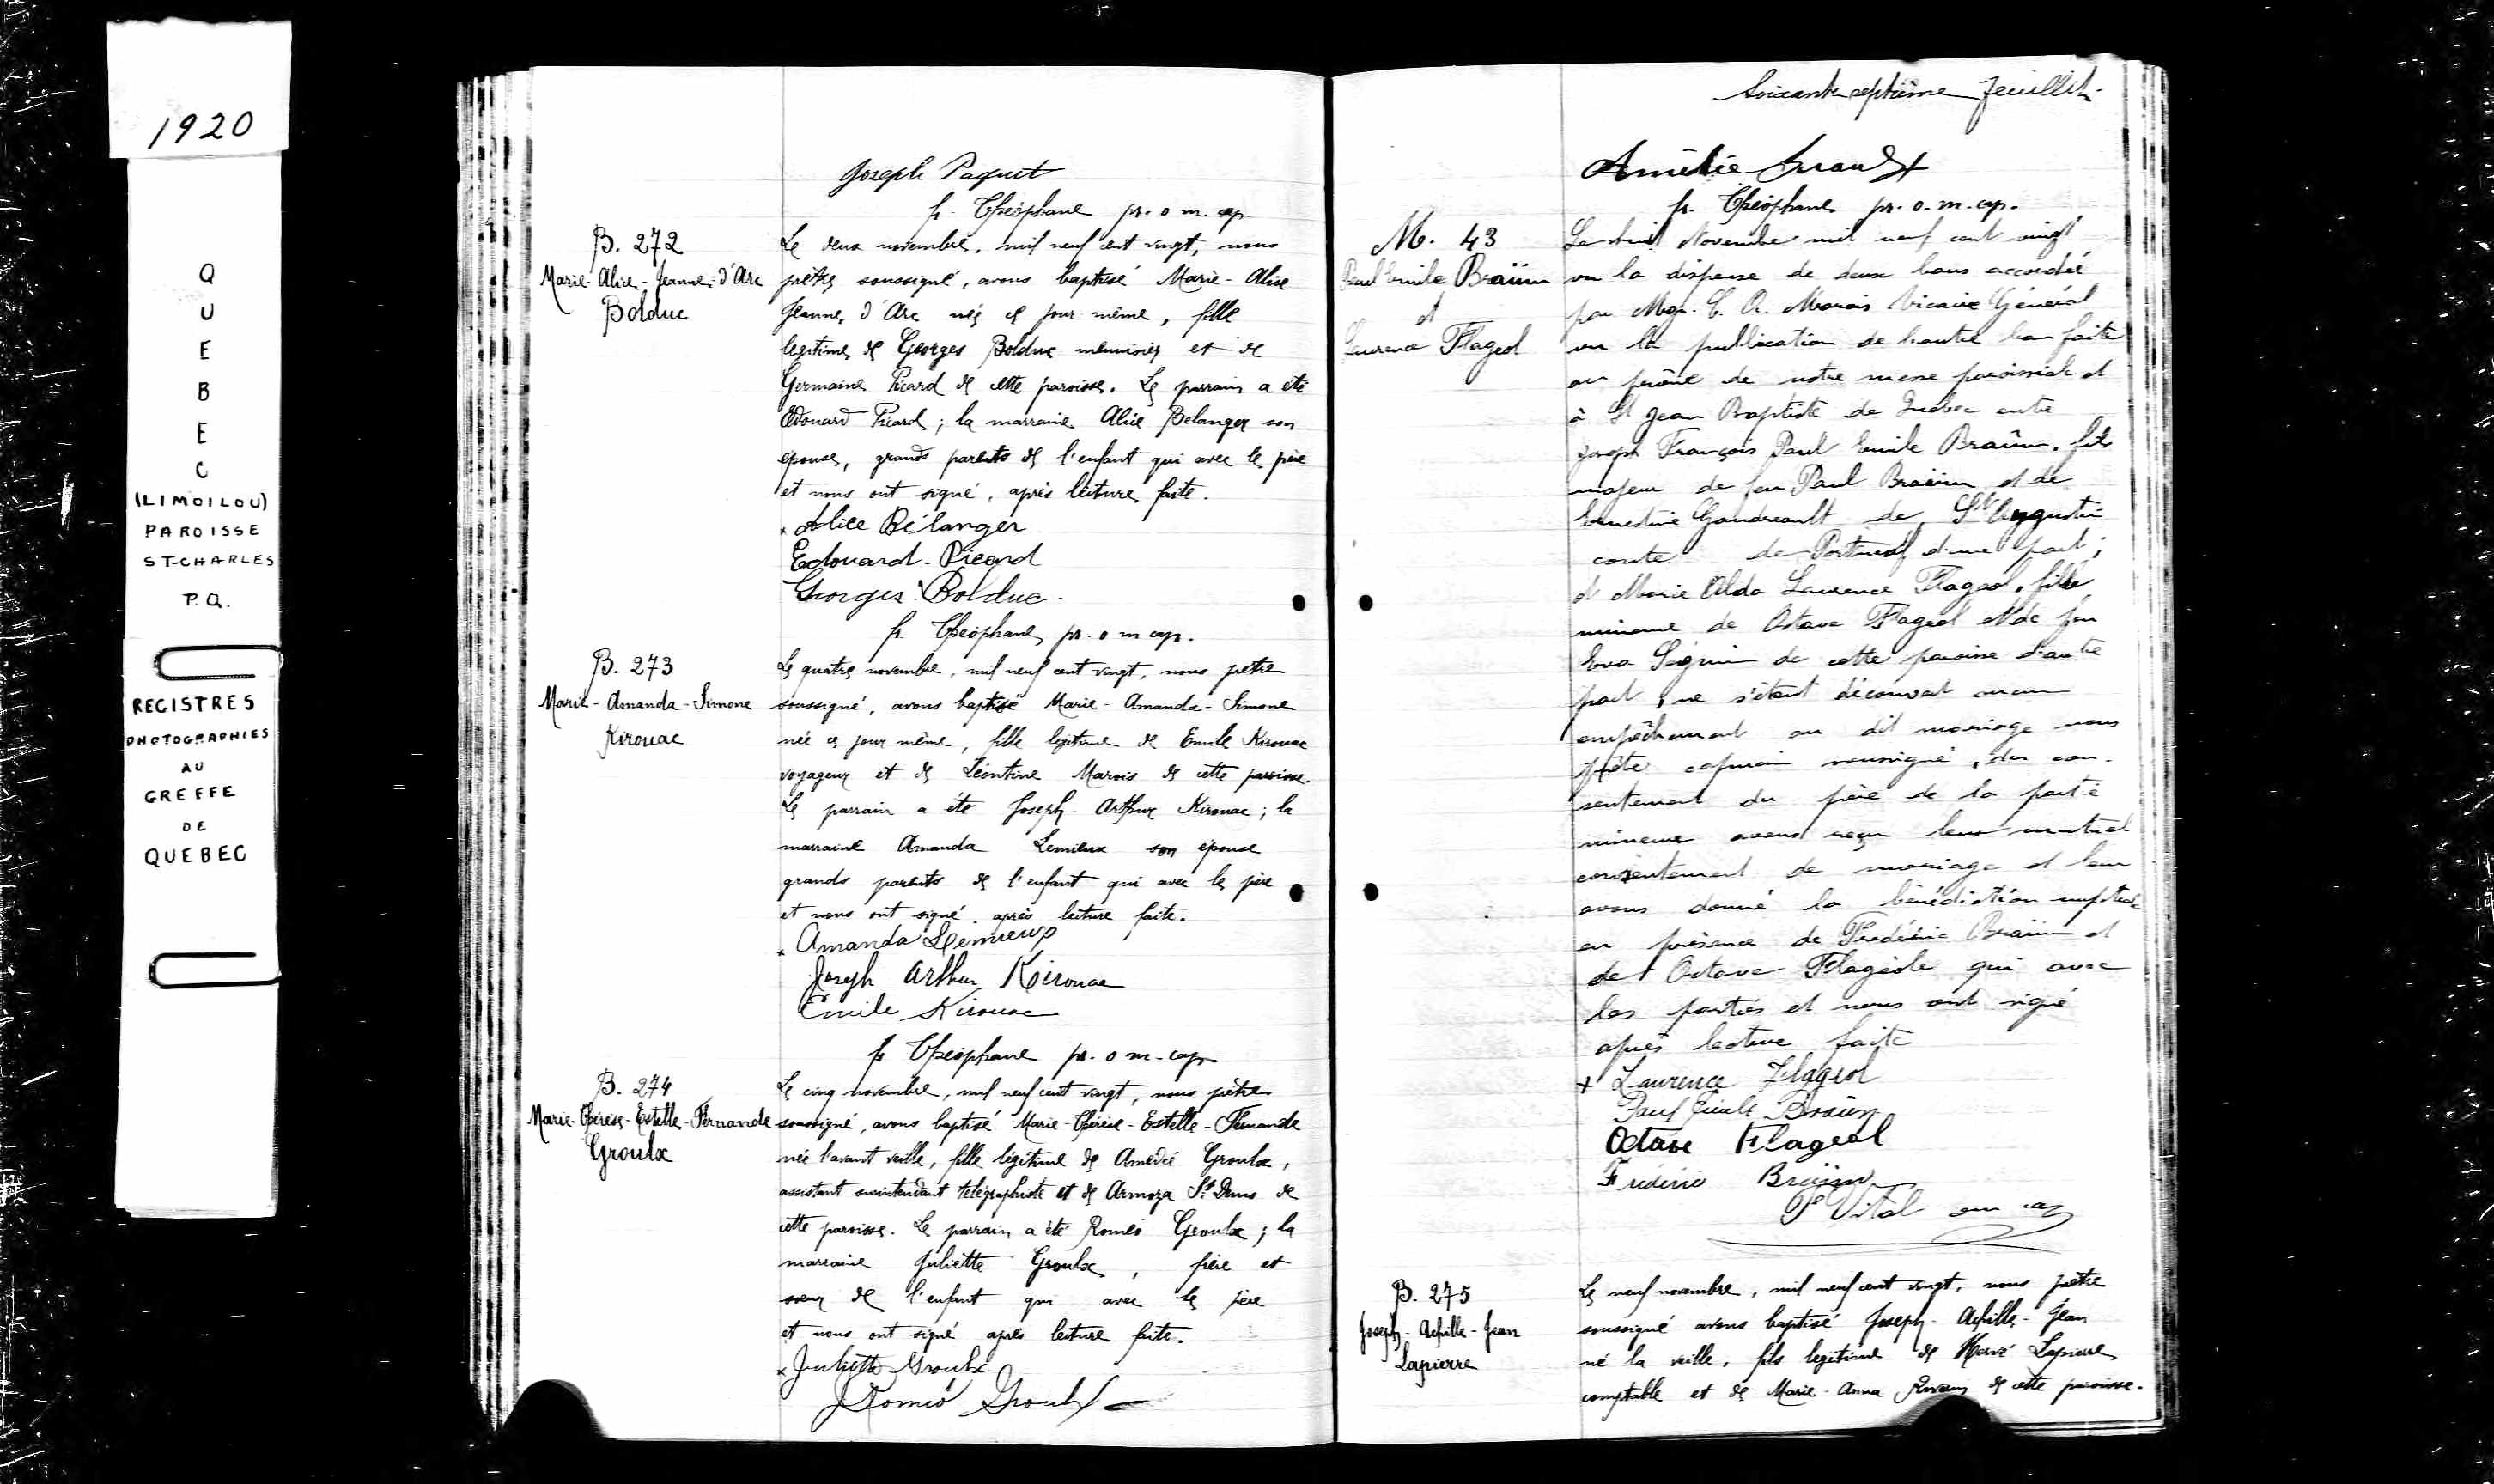 1920
QUEBEC
(LIMOILOU)
PAROISSE
ST-CHARLES
P.Q.
REGISTRES
PHOTOGRAPHIES
AU
GREFFE
DE
QUEBEC
Joseph Paquet
fr. Théophane pr. o m. cap.
B. 272
Marie-Alice-Jeanne-d'Arc
Bolduc
Le deux novembre, mil neuf cent vingt, nous
prêtre soussigné, avons baptisé Marie-Alice
Jeanne d'Arc née ce jour même, fille
legitime de Georges Bolduc menuisier et de
Germaine Picard de cette paroisse. Le parrain a été
Edouard Picard; la marraine Alice Belanger son
epouse, grands parents de l'enfant qui avec le père
et nous ont signé, après lecture faite.
x Alice Bélanger
Edouard-Picard
Georges Bolduc.
fr Théophane pr. o m cap.
B. 273
Marie-Amanda-Simone
Kirouac
Le quatre novembre, mil neuf cent vingt, nous prêtre
soussigné, avons baptisé Marie-Amanda-Simone
née ce jour même, fille legitime de Emile Kirouac
voyageur et de Léontine Marois de cette paroisse.
Le parrain a été Joseph-Arthur Kirouac; la
marraine Amanda Lemieux son epouse
grands parents de l'enfant qui avec le père
et nous ont signé après lecture faite.
x Amanda Lemieux
Joseph Arthur Kirouac
Emile Kirouac
fr Théophane pr. o m-cap
B. 274
Marie-Thérèse-Estelle-Fernande
Groulx
Le cinq novembre, mil neuf cent vingt, nous prêtre
soussigné, avons baptisé Marie-Thérèse-Estelle-Fernande
née l'avant veille, fille légitime de Amédée Groulx,
assistant surintendant télégraphiste et de Armoza St Denis de
cette paroisse. Le parrain a été Roméo Groulx; la
marraine Juliette Groulx, frère et
soeur de l'enfant qui avec le père
et nous ont signé après lecture faite.
x Juliette Groulx
Roméo Groulx
Soixante septième feuillet.
Amélie
fr. Théophane pr. o. m. cap.
M. 43
Paul Emile Braün
et
Laurence Flageol
Le huit Novembre mil neuf cent vingt
vu la dispense de deux bans accordée
par Mgr. C. A. Marois Vicaire Général
vu la publication de l'autre ban faite
au prône de notre messe paroissiale et
à St Jean Baptiste de Québec entre
Joseph François Paul Emile Braün, fils
majeur de feu Paul Braün et de
Ernestine Gaudreault de St Augustin
comte de Portneuf d'une part;
et Marie Alda Laurence Flageol, fille
mineure de Octave Flageol et de feu
Eva Seguin de cette paroisse d'autre
part, ne s'étant découvert aucun
empêchement au dit mariage nous
prêtre capucin soussigné, du con-
sentement du père de la partie
mineure avons reçu leur mutuel
consentement de mariage et leur
avons donné la bénédiction nuptiale
en présence de Frédéric Braün et
de Octave Flageole qui avec
les parties et nous ont signé
après lecture faite
+ Laurence Flageol
Paul Emile Braün
Octave Flageol
Frédéric Braün
P Vital om cap
B. 275
Joseph-Achille-Jean
Lapierre
Le neuf novembre, mil neuf cent vingt, nous prêtre
soussigné avons baptisé Joseph-Achille-Jean
né la veille, fils legitime de Hervé Lapierre
comptable et de Marie-Anna de cette paroisse.